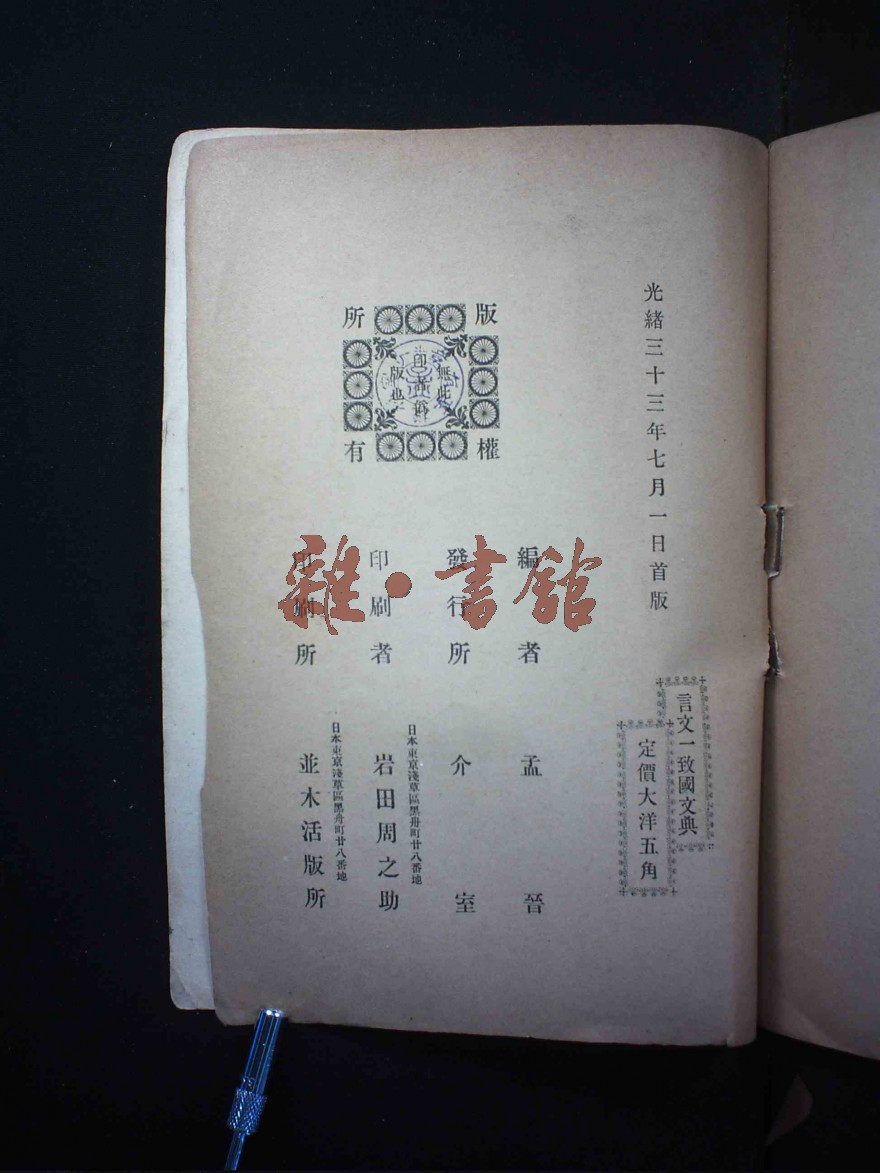 光緒三十三年七月一日首版
言文一致國文典
定價大洋五角
版權所有
無此
印者偽
版也
編者 孟晉
發行所 介室
印刷者 日本東京淺草區黑舟町廿八番地 岩田周之助
印刷所 日本東京淺草區黑舟町廿八番地 並木活版所
雜·書館